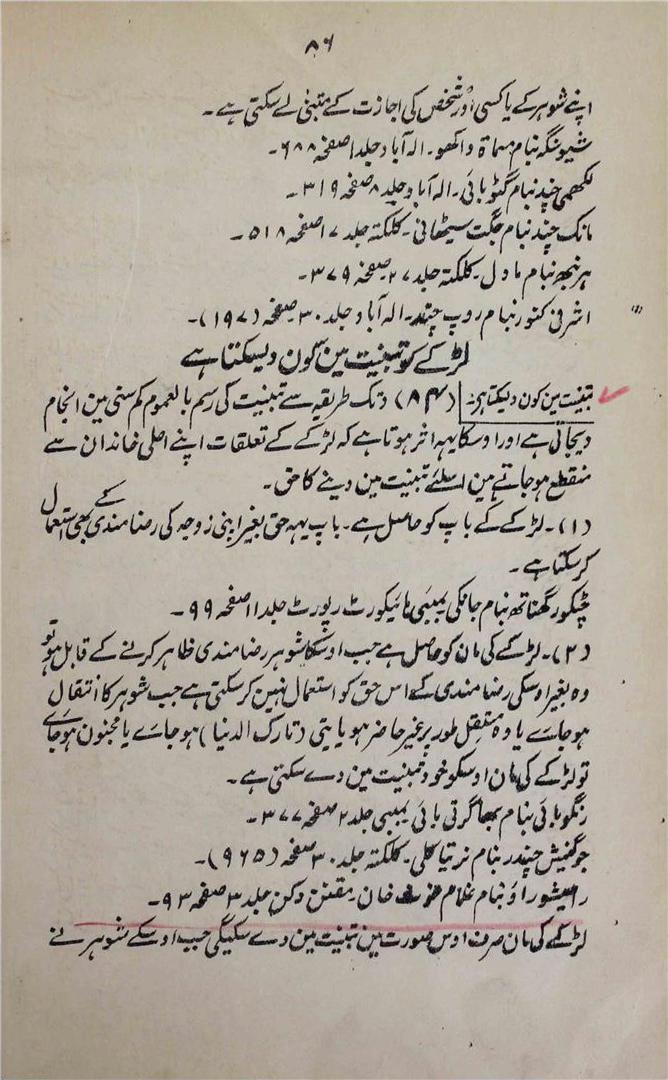 ۸۶
اپنے شوہر کے یا کسی اور شخص کی اجازت کے متبنی لے سکتی ہے۔
شیو سنگہ بنام مسماۃ داکھو۔ الہ آباد جلد ۱ صفحہ ۶۸۸۔
لکھمی چند بنام گٹو بائی۔ الہ آباد جلد ۸ صفحہ ۳۱۹۔
مانک چند بنام جگت سیٹھانی۔ کلکتہ جلد ۱۷ صفحہ ۵۱۸۔
ہرنبھ بنام مادل۔ کلکتہ جلد ۲۷۔ صفحہ ۳۷۹۔
اشرفی کنور بنام روپ چند۔ الہ آباد جلد ۳۰۔ صفحہ (۱۹۷)۔
لڑکے کو تبنیت مین کون دیسکتا ہے
تبنیت مین کون دیسکتا ہے۔ (۸۴) دتک طریقہ سے تبنیت کی رسم بالعموم کم سنی مین انجام
دیجاتی ہے اور اوسکا یہہ اثر ہوتا ہے کہ لڑکے کے تعلقات اپنے اصلی خاندان سے
منقطع ہو جاتے مین اسلئے تبنیت مین دینے کا حق۔
(۱)۔ لڑکے کے باپ کو حاصل ہے۔ باپ یہہ حق بغیر اپنی زوجہ کی رضامندی کے بھی استعمال
کر سکتا ہے۔
رگھناتھ بنام جانکی بمبئی ہائیکورٹ رپورٹ جلد ۱۱ صفحہ ۹۹۔
(۲)۔ لڑکے کی مان کو حاصل ہے جب اوسکا شوہر رضامندی ظاہر کرنے کے قابل ہو تو
وہ بغیر اوسکی رضامندی کے اس حق کو استعمال نہین کر سکتی ہے جب شوہر کا انتقال
ہو جاے یا وہ مستقل طور پر غیر حاضر ہو یا یتی (تارک الدنیا) ہو جاے یا مجنون ہو جاے
تو لڑکے کی مان اوسکو خود تبنیت مین دے سکتی ہے۔
رنگو بائی بنام بھاگرتی بائی بمبیی جلد ۲ صفحہ ۳۷۷۔
جوگنیش چندر بنام نرتیا کلی۔ کلکتہ جلد ۳۰ صفحہ (۹۶۵)۔
رامیشور راؤ بنام غلام غوث خان مقنن دکن جلد ۳ صفحہ ۹۳۔
لڑکے کی مان صرف اوس صورت مین تبنیت مین دے سکیگی جب اوسکے شوہر نے